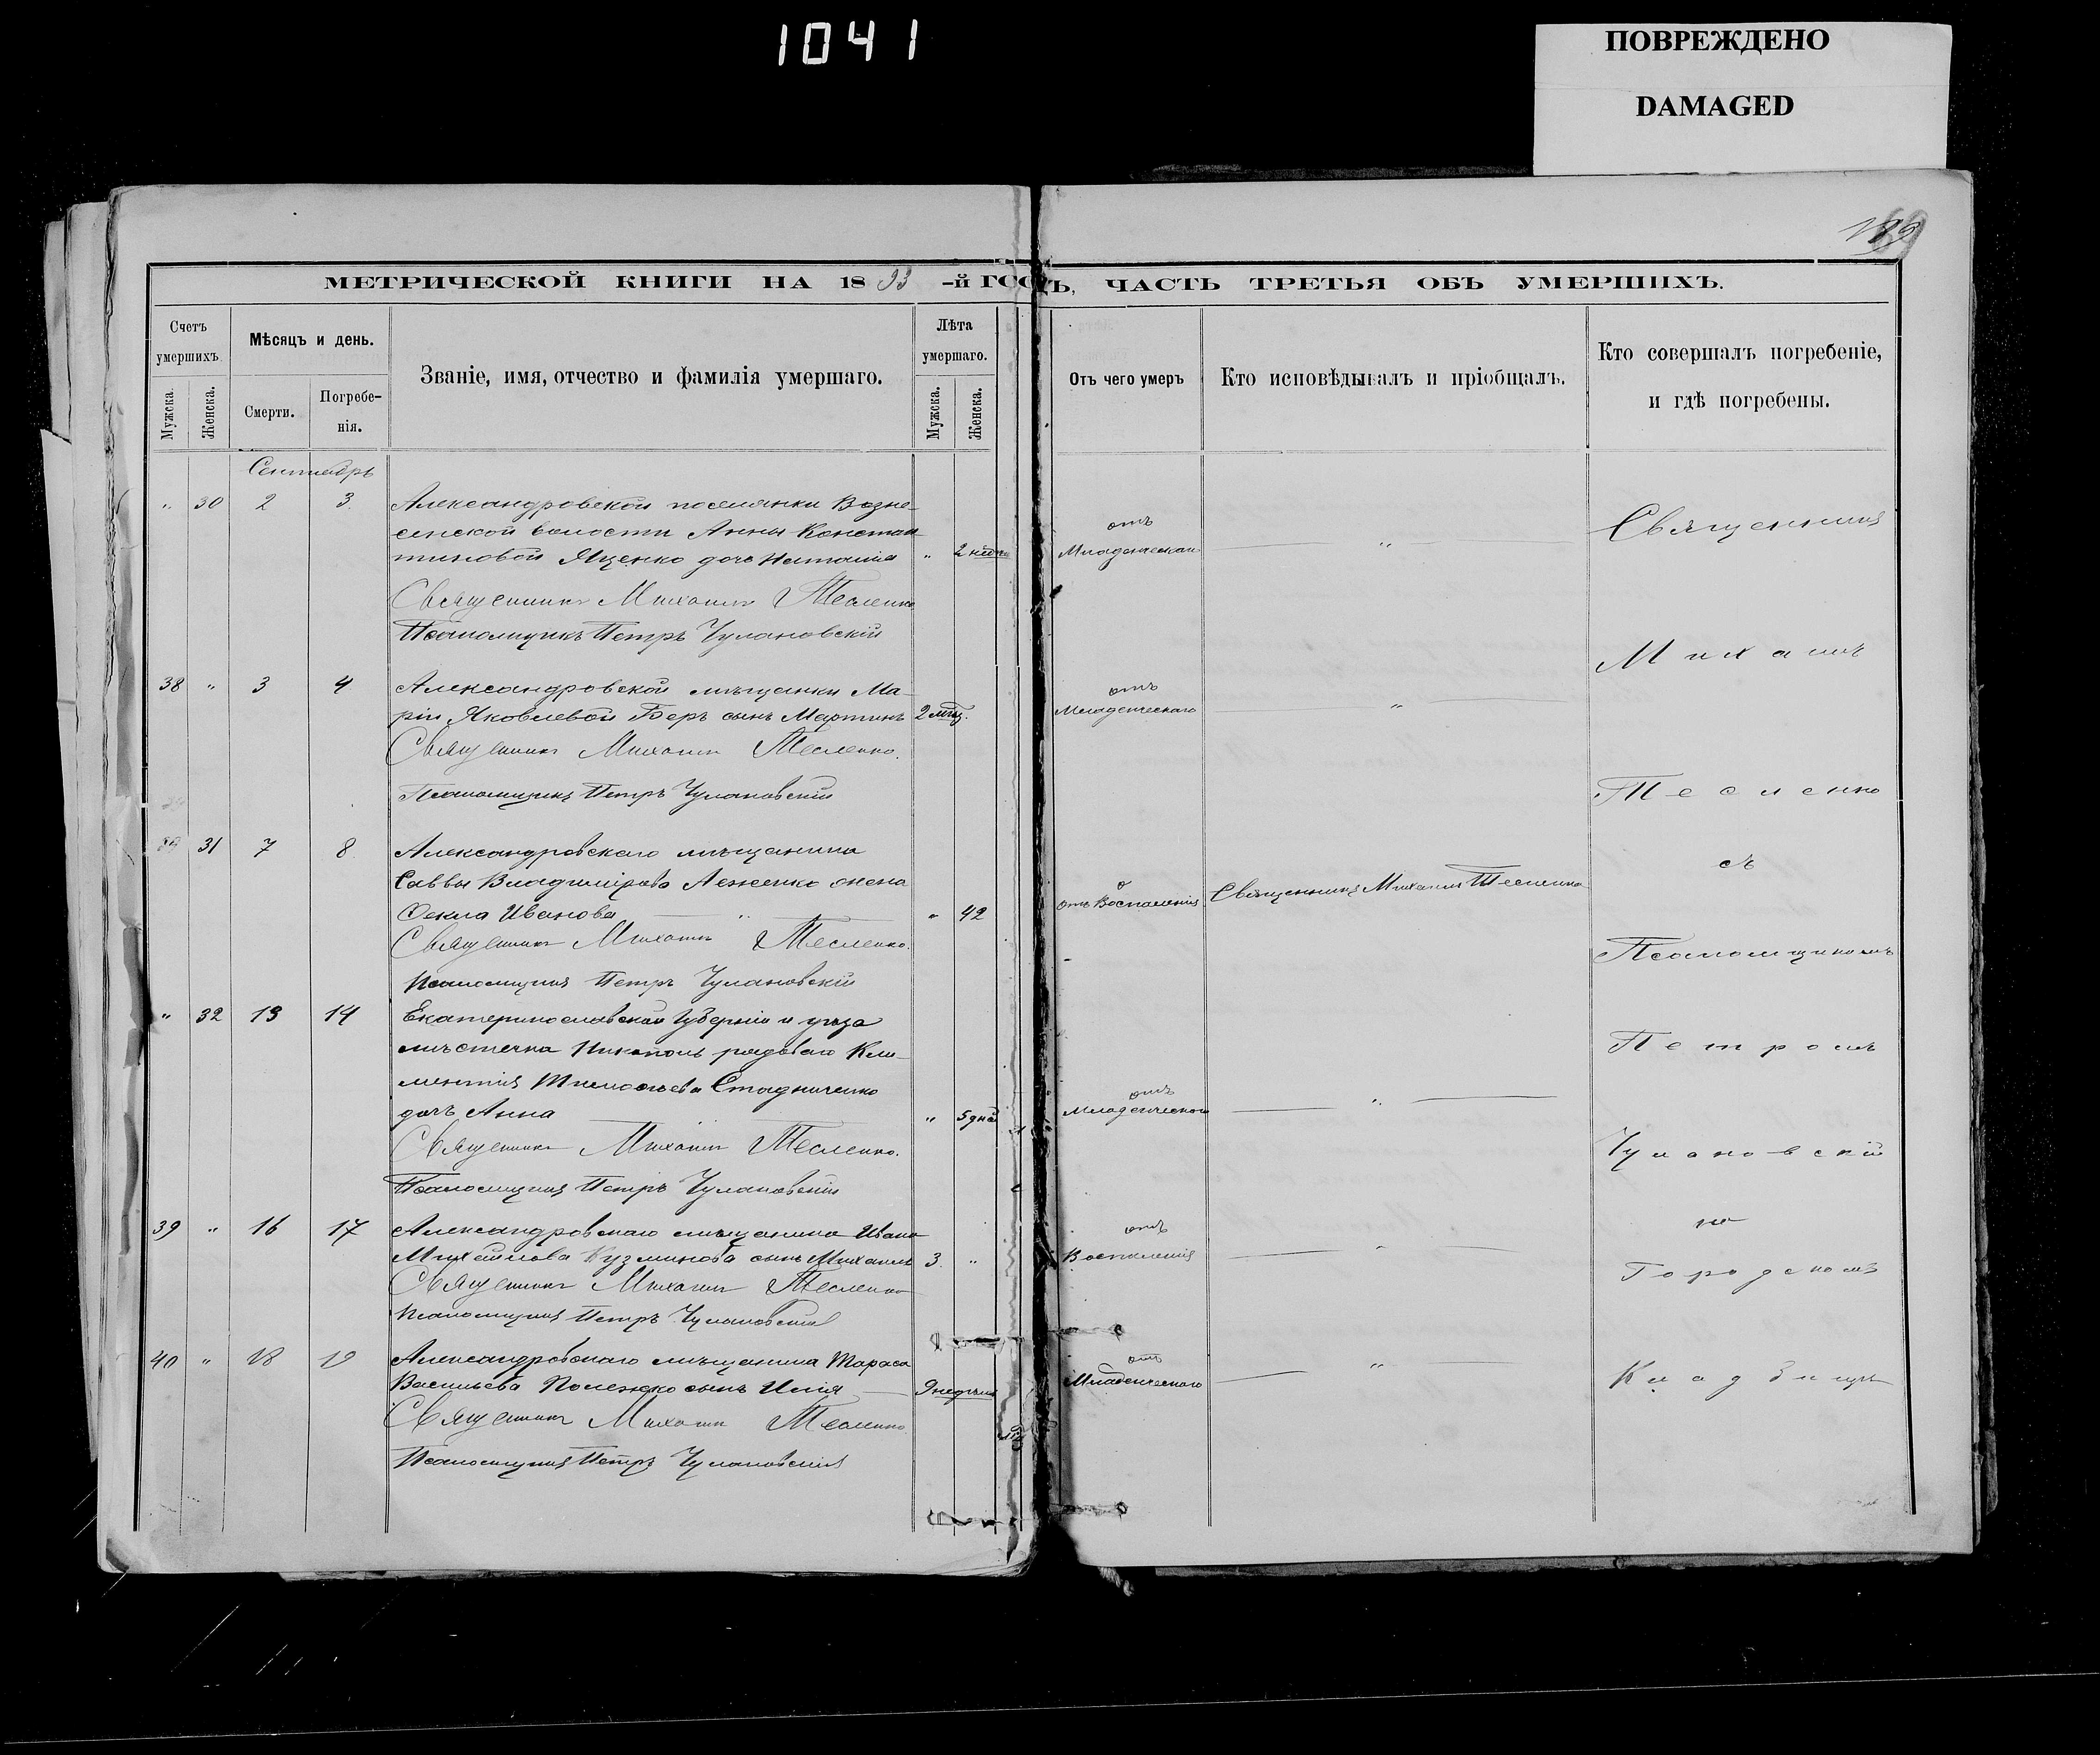 1041
ПОВРЕЖДЕНО
DAMAGED
МЕТРИЧЕСКОЙ КНИГИ НА 1893 -й ГОДЪ, ЧАСТЬ ТРЕТЬЯ ОБЪ УМЕРШИХЪ.
Счетъ умершихъ.
Мужска.
Женска.
Мѣсяцъ и день.
Смерти.
Погребе-
нія.
Званіе, имя, отчество и фамилія умершаго.
Лѣта умершаго.
Мужска.
Женска.
Отъ чего умеръ
Кто исповѣдывалъ и пріобщалъ.
Кто совершалъ погребеніе,
и гдѣ погребены.
Сентябрь
" 30 2 3 Александровской поселянки Возне-
сенской волости Анны Констан
тиновой Яценко дочь Наталія " 2 отъ Младенческой "
Священникъ Михаилъ Тесленко
Псаломщикъ Петръ Чулановскій
38 " 3 4 Александровской мѣщанки Ма-
ріи Яковлевой Беръ сынъ Мартинъ 2 мѣс. отъ Младенческаго "
Священникъ Михаилъ Тесленко.
Псаломщикъ Петръ Чулановскій
31 7 8 Александровскаго мѣщанина
Саввы Владимірова Леженко жена
Ѳекла Иванова " " 42 отъ Воспаленія Священникъ Михаилъ Тесленко
Священникъ Михаилъ Тесленко.
Псаломщикъ Петръ Чулановскій
" 32 13 14 Екатеринославской Губерніи и уѣзда
мѣстечка Никополь рядоваго Кли-
ментія Тимоѳеева Стадниченко
дочь Анна " 5 дней отъ Младенческаго "
Священникъ Михаилъ Тесленко.
Псаломщикъ Петръ Чулановскій
39 " 16 17 Александровскаго мѣщанина Ивана
Михайлова Кузминова сынъ Михаилъ 3. " отъ Воспаленія "
Священникъ Михаилъ Тесленко
Псаломщикъ Петръ Чулановскій
40 " 18 19 Александровскаго мѣщанина Тараса
Васильева сынъ Илія 9 недѣль отъ Младенческаго "
Священникъ Михаилъ Тесленко
Псаломщикъ Петръ Чулановскій
Священникъ
Михаилъ
Тесленко
съ
Псаломщикомъ
Петромъ
Чулановскій
на
Городскомъ
Кладбищѣ